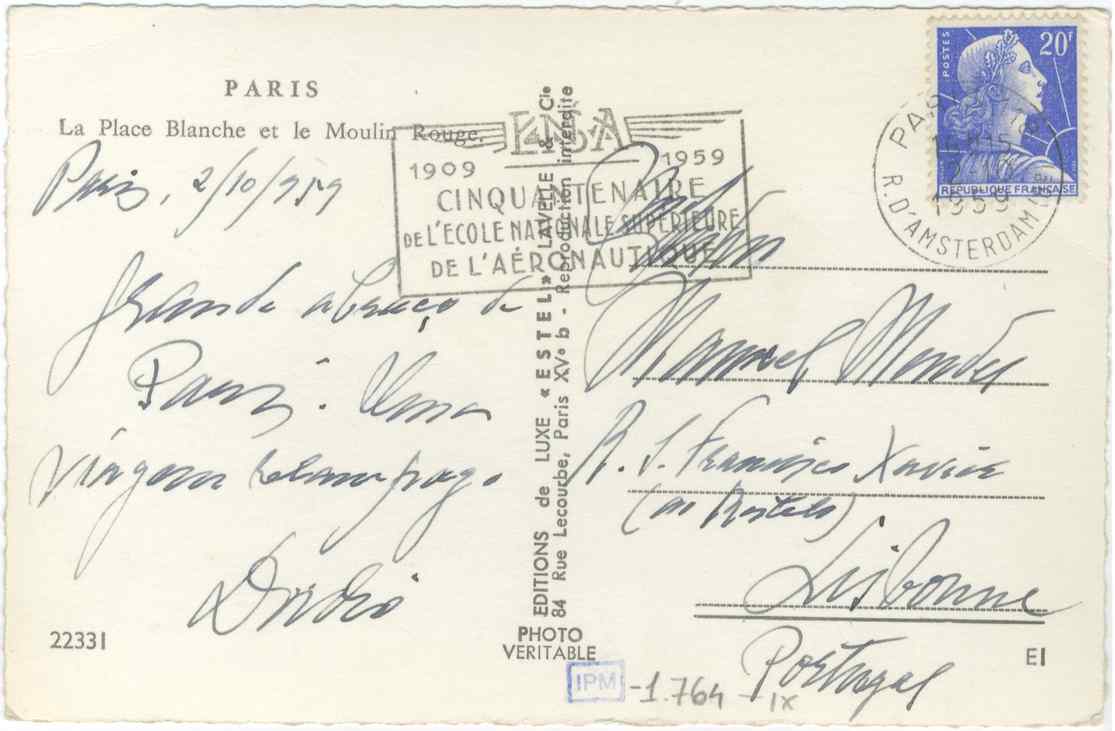 PARIS
La Place Blanche et le Moulin Rouge.
Paris, 2/10/959
Grande abraço de
Paris. Uma
viagem relampago
Dordio
22331
ENSA
1909 1959
CINQUANTENAIRE
DE L'ECOLE NATIONALE SUPERIEURE
DE L'AÉRONAUTIQUE
EDITIONS de LUXE « ESTEL » LAVELLE & Cie
84 Rue Lecourbe, Paris XVe b - Reproduction interdite
PHOTO
VERITABLE
POSTES
20F
REPUBLIQUE FRANÇAISE
PARIS
1959
R. D'AMSTERDAM
Manuel Mendes
R. S. Francisco Xavier
(ao Restelo)
Lisbonne
Portugal
EI
IPM -1.764 -IX